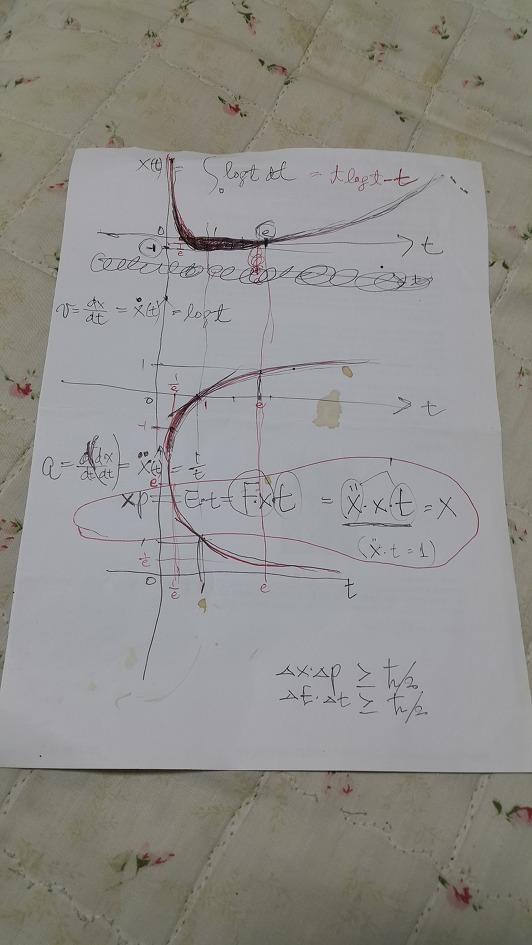 x(t) = ∫₀ log t dt = t log t - t
0 1 e t
-1 1/e
v = dx/dt = ẋ(t) = log t
1 1/e
0 1 e t
-1
a = d/dt(dx/dt) = ẍ(t) = 1/t
e
xp = E·t = F·x·t = ẍ·x·t = x
(ẍ·t = 1)
1
1/e
0 1/e 1 e t
Δx·Δp ≥ ħ/2
Δt·Δt ≥ ħ/2